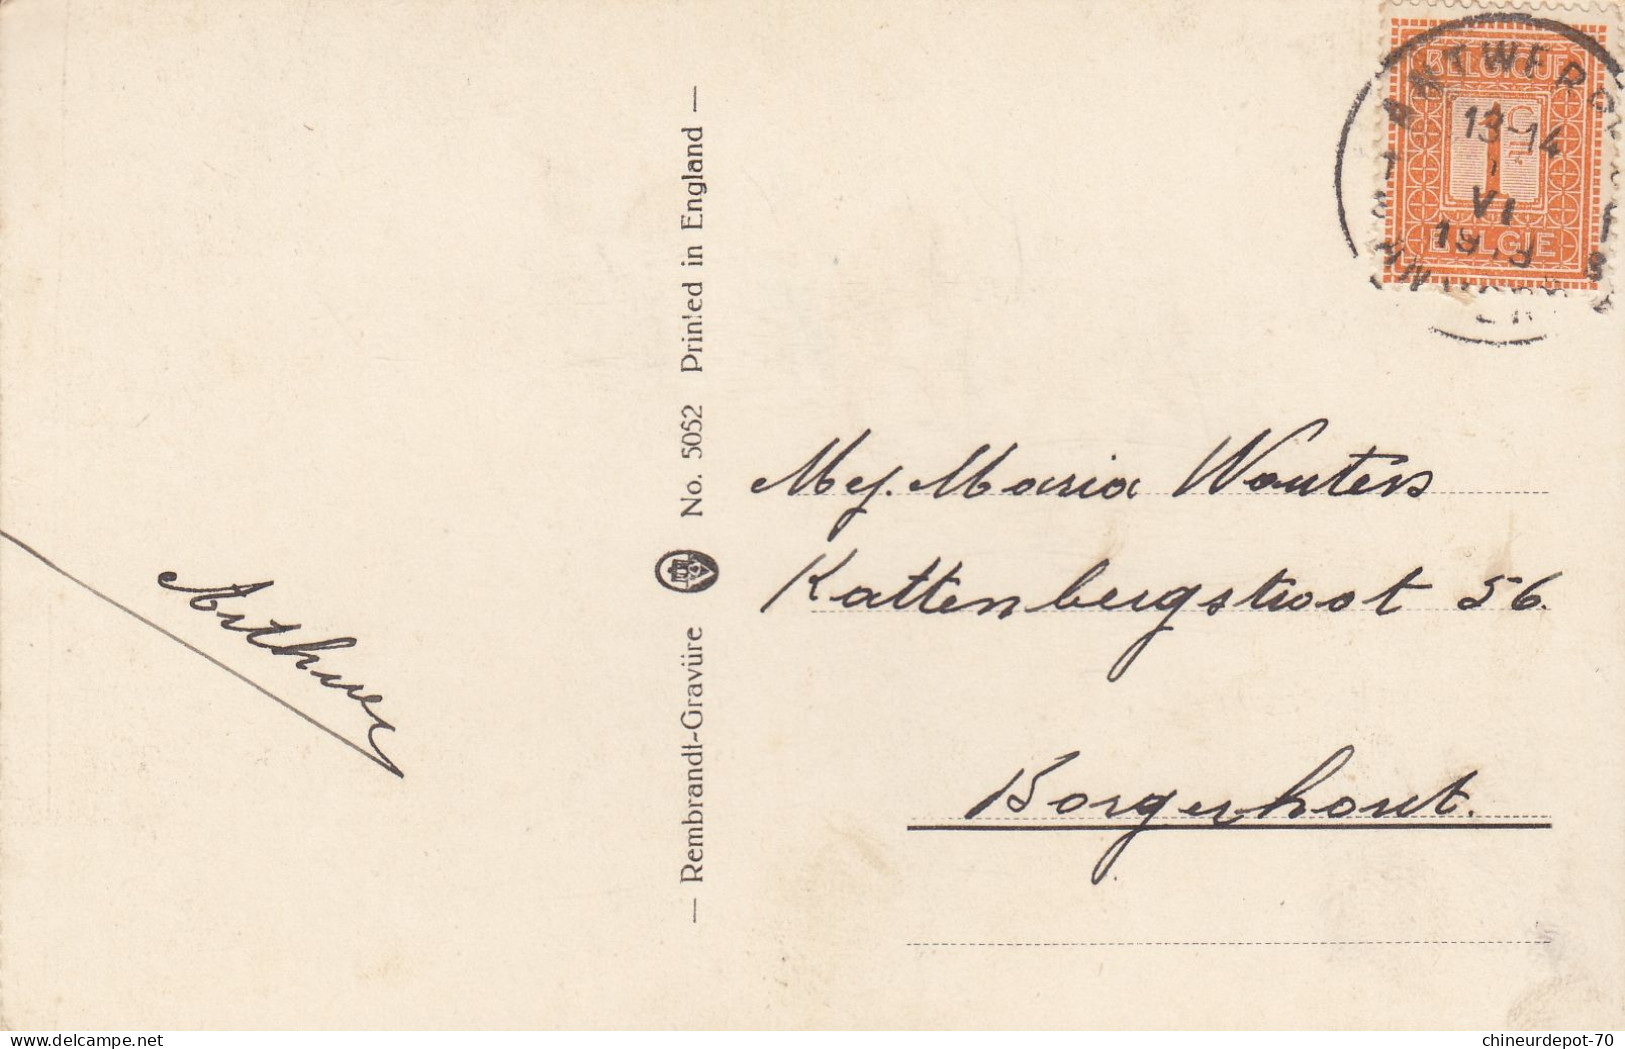 BELGIQUE
1
CT
BELGIE
ANTWERP
13-14
VI
Rembrandt-Gravüre No. 5052 Printed in England
Arthur
Mej. Maria Wouters
Kattenbergstraat 56.
Borgerhout.
delcampe.net
chineurdepot-70